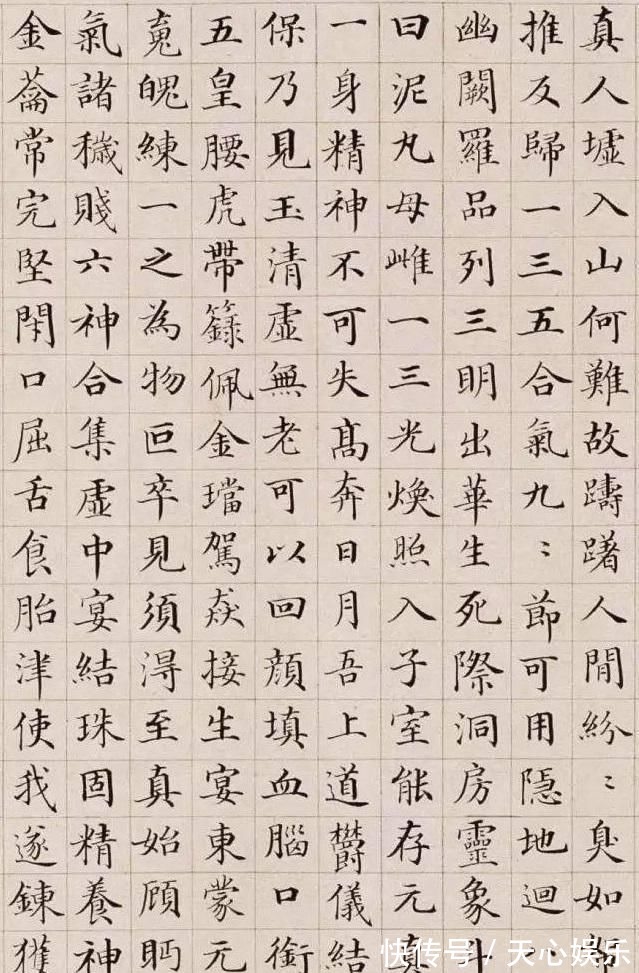 真人墟入山何難故躊躇人間紛〻臭如
推反歸一三五合氣九〻節可用隱地迴
幽闕羅品列三明出華生死際洞房靈象斗
曰泥丸母雌一三光煥照入子室能存元真
一身精神不可失高奔日月吾上道鬱儀結
保乃見玉清虛無老可以回顏填血腦口銜
五皇腰虎帶籙佩金璫駕焱接生宴東蒙元
䰟魄練一之為物叵卒見須淂至真始顧眄
氣諸穢賤六神合集虛中宴結珠固精養神
金籥常完堅閇口屈舌食胎津使我遂鍊獲
快传号/天心娱乐